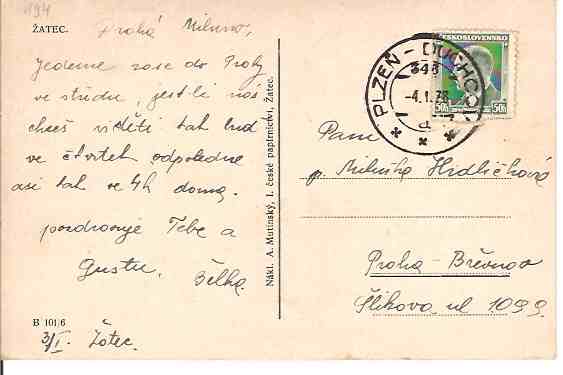 194
ŽATEC.
Drahá Miluno,
Jedeme zase do Prahy
ve středu, jestli nás
chceš viděti tak buď
ve čtvrtek odpoledne
asi tak ve 4h doma.
pozdravuje Tebe a
Gustu. Bělka
B 101/6
3/I. Žatec.
Nákl. A. Mutinský, I. české papírnictví, Žatec.
ČESKOSLOVENSKO
50h 50h
PLZEŇ - DUCHCOV
348
-4.I.38
Paní
p. Miluška Hrdličková
Praha - Břevnov
Šlikova ul 1099